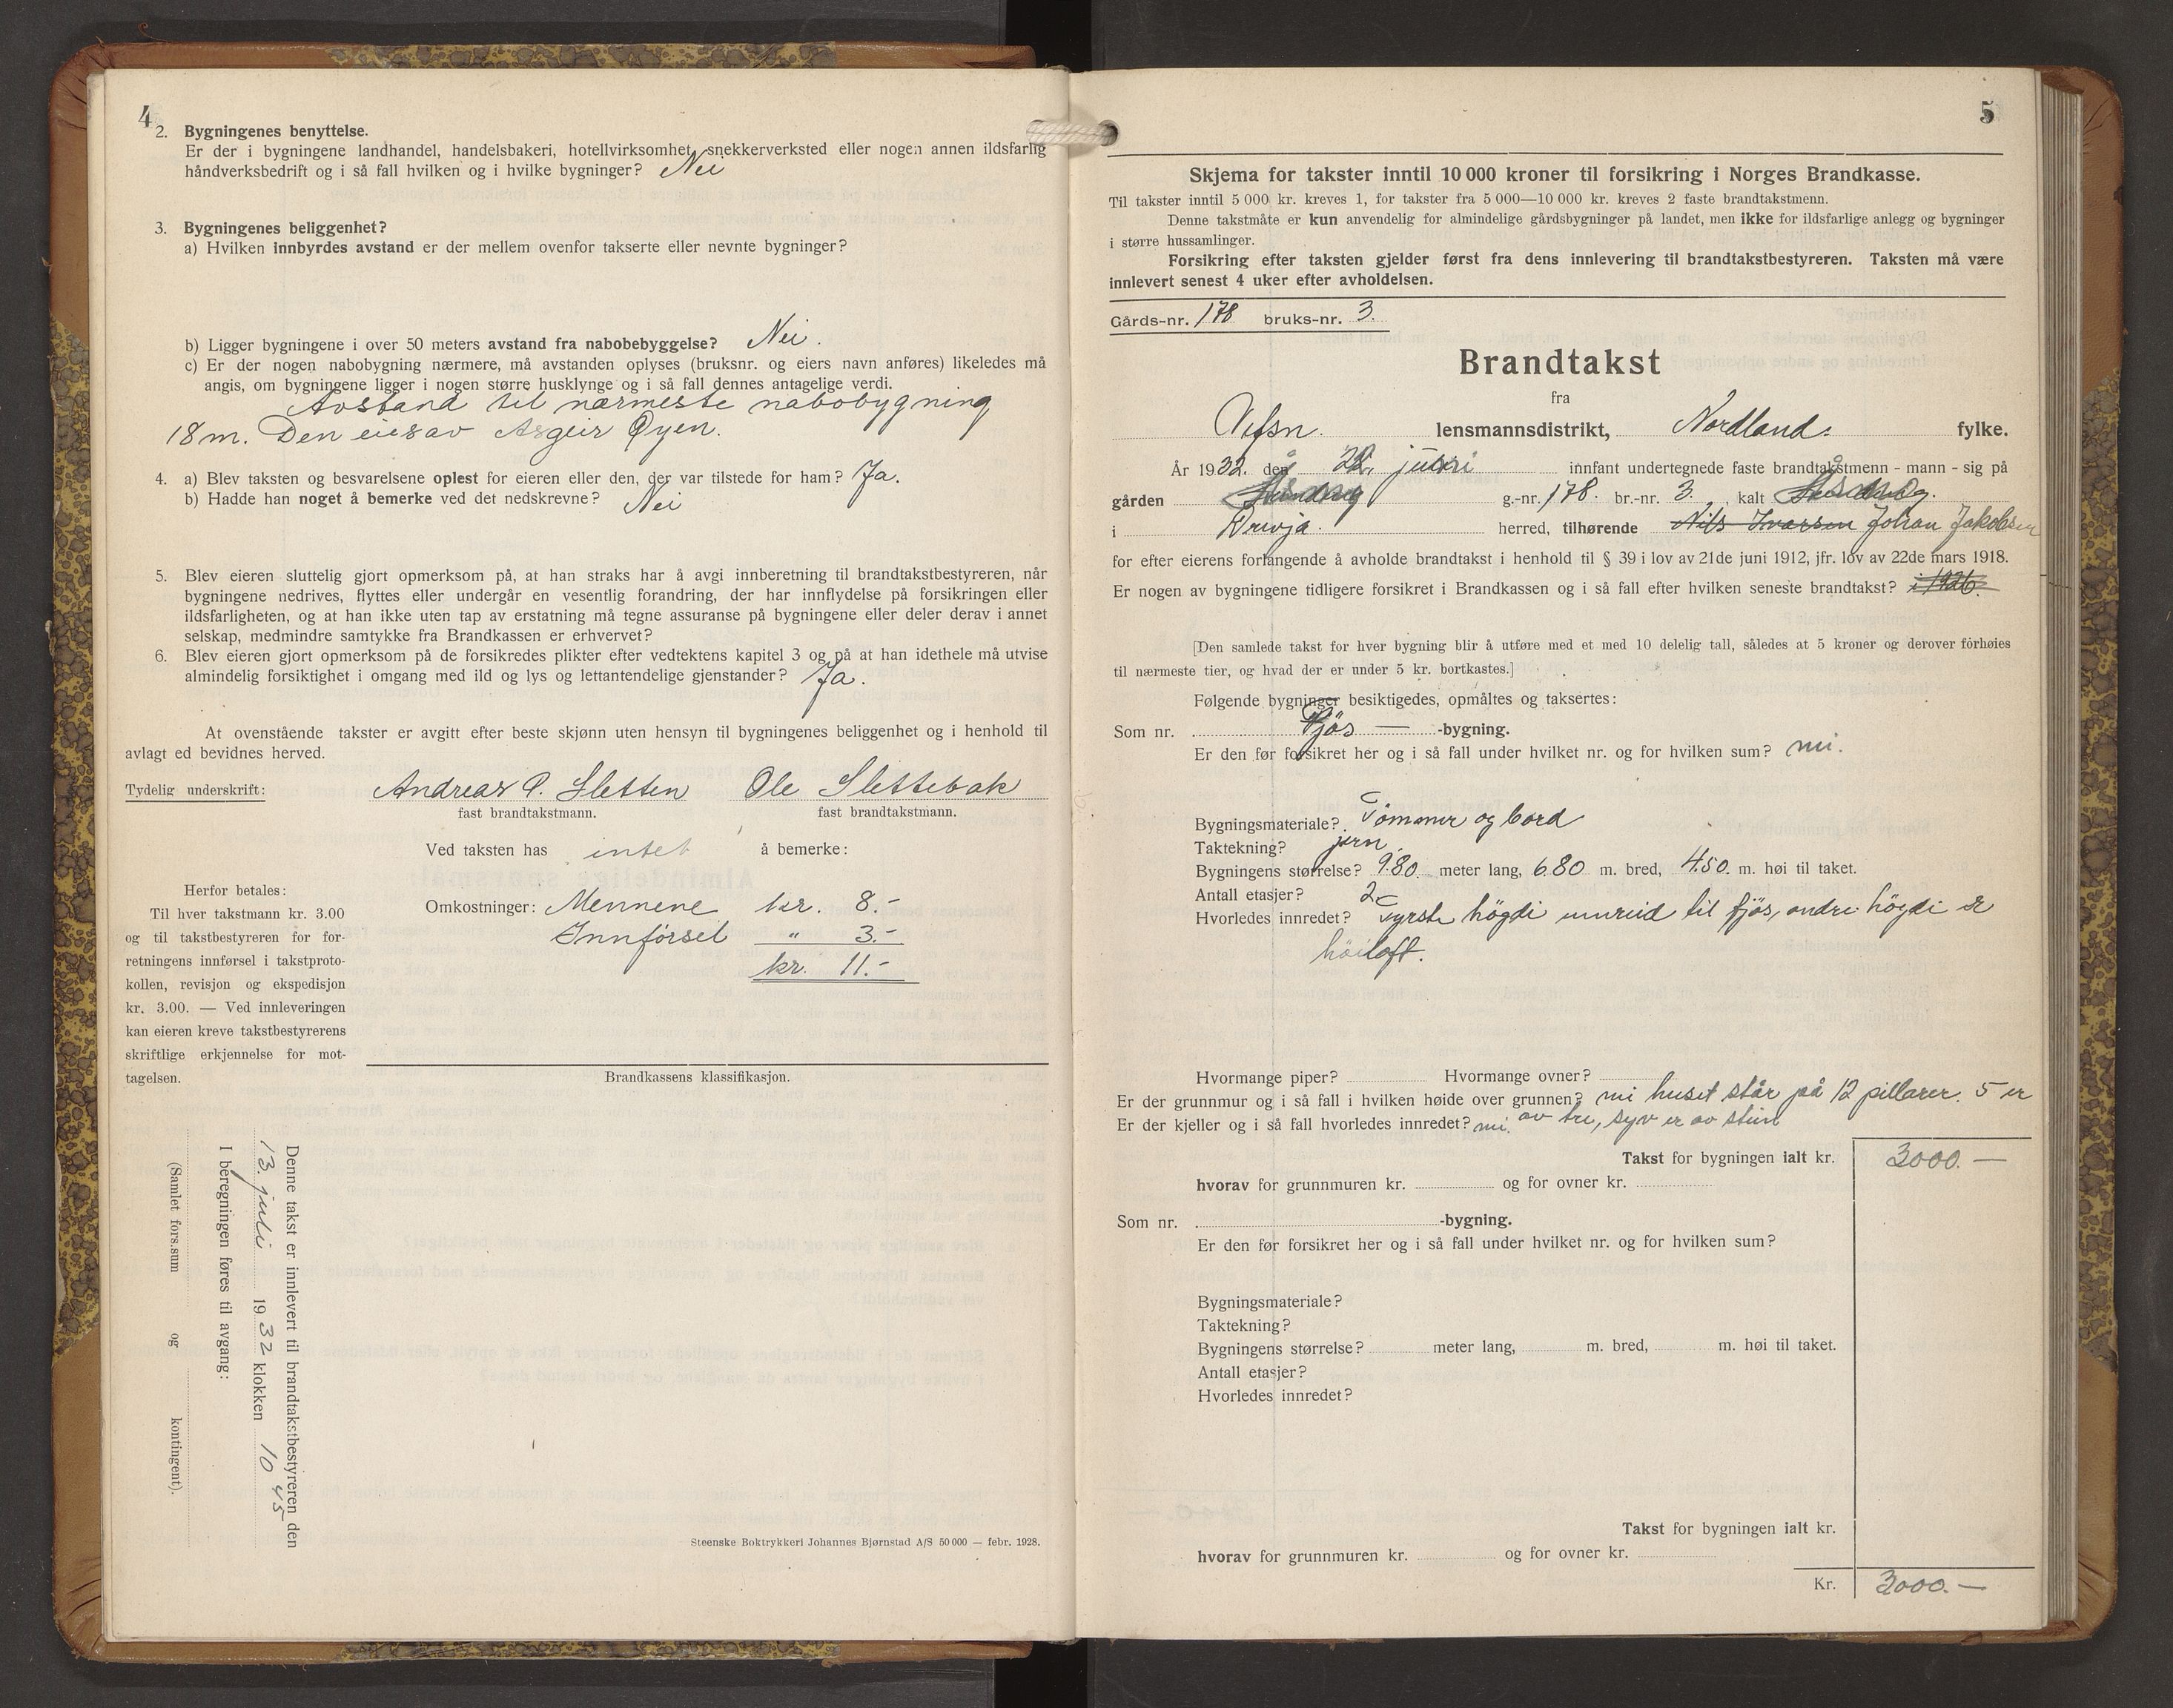 4
2. Bygningenes benyttelse.
Er der i bygningene landhandel, handelsbakeri, hotellvirksomhet, snekkerverksted eller nogen annen ildsfarlig
håndverksbedrift og i så fall hvilken og i hvilke bygninger? Nei
3. Bygningenes beliggenhet?
a) Hvilken innbyrdes avstand er der mellem ovenfor takserte eller nevnte bygninger?
b) Ligger bygningene i over 50 meters avstand fra nabobebyggelse? Nei.
c) Er der nogen nabobygning nærmere, må avstanden oplyses (bruksnr. og eiers navn anføres) likeledes må
angis, om bygningene ligger i nogen større husklynge og i så fall dennes antagelige verdi.
Avstand til nærmeste nabobygning
18 m. Den eies av Asgeir Øyen.
4. a) Blev taksten og besvarelsene oplest for eieren eller den, der var tilstede for ham? Ja.
b) Hadde han noget å bemerke ved det nedskrevne? Nei
5. Blev eieren sluttelig gjort opmerksom på, at han straks har å avgi innberetning til brandtakstbestyreren, når
bygningene nedrives, flyttes eller undergår en vesentlig forandring, der har innflydelse på forsikringen eller
ildsfarligheten, og at han ikke uten tap av erstatning må tegne assuranse på bygningene eller deler derav i annet
selskap, medmindre samtykke fra Brandkassen er erhvervet?
6. Blev eieren gjort opmerksom på de forsikredes plikter efter vedtektens kapitel 3 og på at han idethele må utvise
almindelig forsiktighet i omgang med ild og lys og lettantendelige gjenstander? Ja.
At ovenstående takster er avgitt efter beste skjønn uten hensyn til bygningenes beliggenhet og i henhold til
avlagt ed bevidnes herved.
Tydelig underskrift: Andreas P. Sletten Ole Slettebak
fast brandtakstmann. fast brandtakstmann.
Ved taksten has intet å bemerke:
Herfor betales:
Til hver takstmann kr. 3.00
og til takstbestyreren for for-
retningens innførsel i takstproto-
kollen, revisjon og ekspedisjon
kr. 3.00. — Ved innleveringen
kan eieren kreve takstbestyrerens
skriftlige erkjennelse for mot-
tagelsen.
Omkostninger: Mennene kr. 8.-
Innførsel " 3.-
kr. 11.-
Brandkassens klassifikasjon.
Denne takst er innlevert til brandtakstbestyreren den
13. juli 1932 klokken 10 45
I beregningen føres til avgang:
(Samlet fors.sum og kontingent).
Steenske Boktrykkeri Johannes Bjørnstad A/S 50 000 — febr. 1928.
5
Skjema for takster inntil 10 000 kroner til forsikring i Norges Brandkasse.
Til takster inntil 5 000 kr. kreves 1, for takster fra 5 000—10 000 kr. kreves 2 faste brandtakstmenn.
Denne takstmåte er kun anvendelig for almindelige gårdsbygninger på landet, men ikke for ildsfarlige anlegg og bygninger
i større hussamlinger.
Forsikring efter taksten gjelder først fra dens innlevering til brandtakstbestyreren. Taksten må være
innlevert senest 4 uker efter avholdelsen.
Gårds-nr. 178 bruks-nr. 3.
Brandtakst
fra
Vefsn. lensmannsdistrikt, Nordland. fylke.
År 1932. den 22. innfant undertegnede faste brandtakstmenn - mann - sig på
gården g.-nr. 178. br.-nr. 3. , kalt
i Drevja. herred, tilhørende Nils Ivarsen Johan Jakobsen
for efter eierens forlangende å avholde brandtakst i henhold til § 39 i lov av 21de juni 1912, jfr. lov av 22de mars 1918.
Er nogen av bygningene tidligere forsikret i Brandkassen og i så fall efter hvilken seneste brandtakst? i 1926.
[Den samlede takst for hver bygning blir å utføre med et med 10 delelig tall, således at 5 kroner og derover forhøies
til nærmeste tier, og hvad der er under 5 kr. bortkastes.]
Følgende bygninger besiktigedes, opmåltes og taksertes:
Som nr. Fjös — -bygning.
Er den før forsikret her og i så fall under hvilket nr. og for hvilken sum? nei.
Bygningsmateriale? Tömmer og bord
Taktekning? jern.
Bygningens størrelse? 9.80 meter lang, 6.80 m. bred, 4.50. m. høi til taket.
Antall etasjer? 2
Hvorledes innredet? Fyrste högdi innreid til fjös, andre högdi er
höiloft.
Hvormange piper? Hvormange ovner?
Er der grunnmur og i så fall i hvilken høide over grunnen? nei huset står på 12 pillarer. 5 er
Er der kjeller og i så fall hvorledes innredet? nei. av tre, syv er av stein
Takst for bygningen ialt kr. 3000.—
hvorav for grunnmuren kr. og for ovner kr.
Som nr. -bygning.
Er den før forsikret her og i så fall under hvilket nr. og for hvilken sum?
Bygningsmateriale?
Taktekning?
Bygningens størrelse? meter lang, m. bred, m. høi til taket.
Antall etasjer?
Hvorledes innredet?
Takst for bygningen ialt kr.
hvorav for grunnmuren kr. og for ovner kr.
Kr. 3000.—